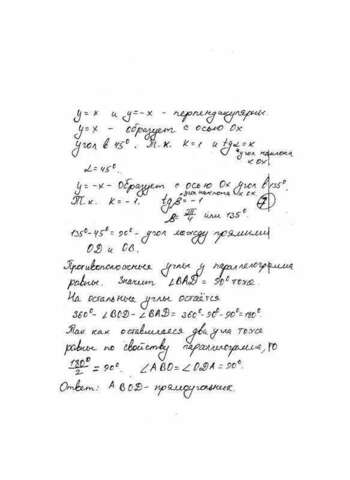 y = x и y = -x - перпендикулярны.
y = x - образует с осью Ox
угол в 45°. Т.к. K = 1 и tg α = K
угол наклона
к OX.
α = 45°
y = -x - Образует с осью Ox угол в 135°.
Т.к. K = -1. tg β = -1
β = 3π/4 или 135°
135° - 45° = 90° - угол между прямыми
OD и OB.
Противоположные углы у параллелограмма
равны. Значит ∠BAD = 90° тоже.
На остальные углы остаётся
360° - ∠BOD - ∠BAD = 360° - 90° - 90° = 180°
Так как оставшиеся два угла тоже
равны по свойству параллелограмма, то
180°/2 = 90°. ∠ABO = ∠ODA = 90°.
Ответ: ABOD - прямоугольник.